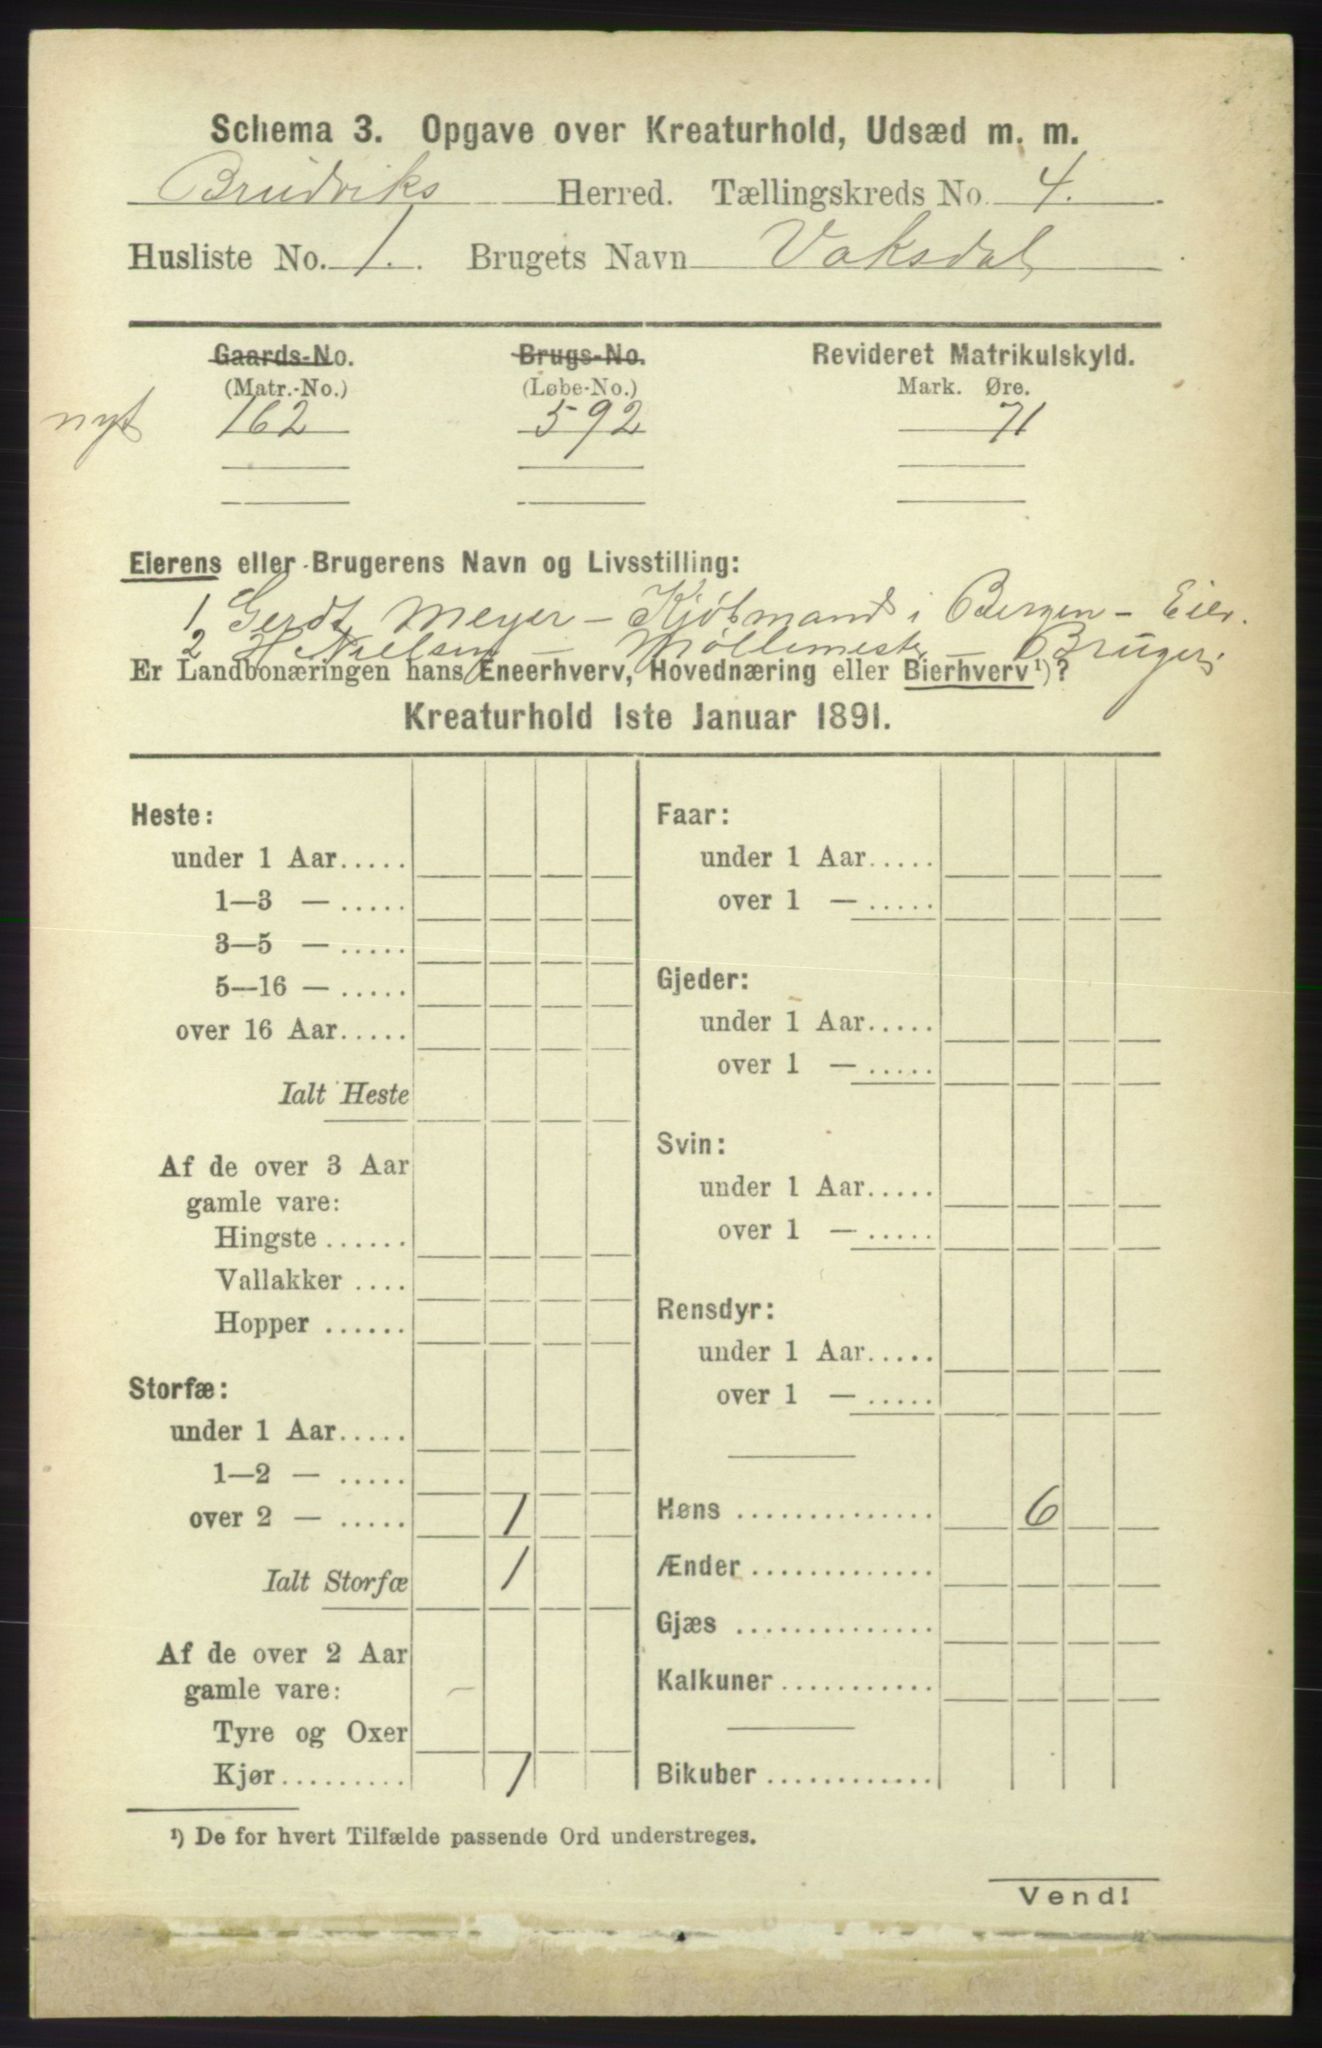 Schema 3. Opgave over Kreaturhold, Udsæd m. m.
Brudviks Herred. Tællingskreds No. 4.
Husliste No. 1. Brugets Navn Vaksdal
Gaards-No. Brugs-No. Revideret Matrikulskyld.
(Matr.-No.) (Løbe-No.) Mark. Øre.
nyt 162 592 71
Eierens eller Brugerens Navn og Livsstilling:
1 Gerdt Meyer – Kjøbmand i Bergen – Eier.
2 H Nielsen – Møllemester – Bruger.
Er Landbonæringen hans Eneerhverv, Hovednæring eller Bierhverv¹)?
Kreaturhold 1ste Januar 1891.
Heste:
under 1 Aar.....
1—3 — .....
3—5 — .....
5—16 — .....
over 16 Aar.....
Ialt Heste
Af de over 3 Aar
gamle vare:
Hingste ......
Vallakker ....
Hopper ......
Storfæ:
under 1 Aar.....
1—2 — .....
over 2 — ..... 1
Ialt Storfæ 1
Af de over 2 Aar
gamle vare: –
Tyre og Oxer
Kjør......... 1
Faar:
under 1 Aar.....
over 1 — .....
Gjeder:
under 1 Aar.....
over 1 — .....
Svin:
under 1 Aar.....
over 1 — .....
Rensdyr:
under 1 Aar.....
over 1 — .....
Høns .............. 6
Ænder .............
Gjæs ..............
Kalkuner ...........
Bikuber ............
¹) De for hvert Tilfælde passende Ord understreges.
Vend!